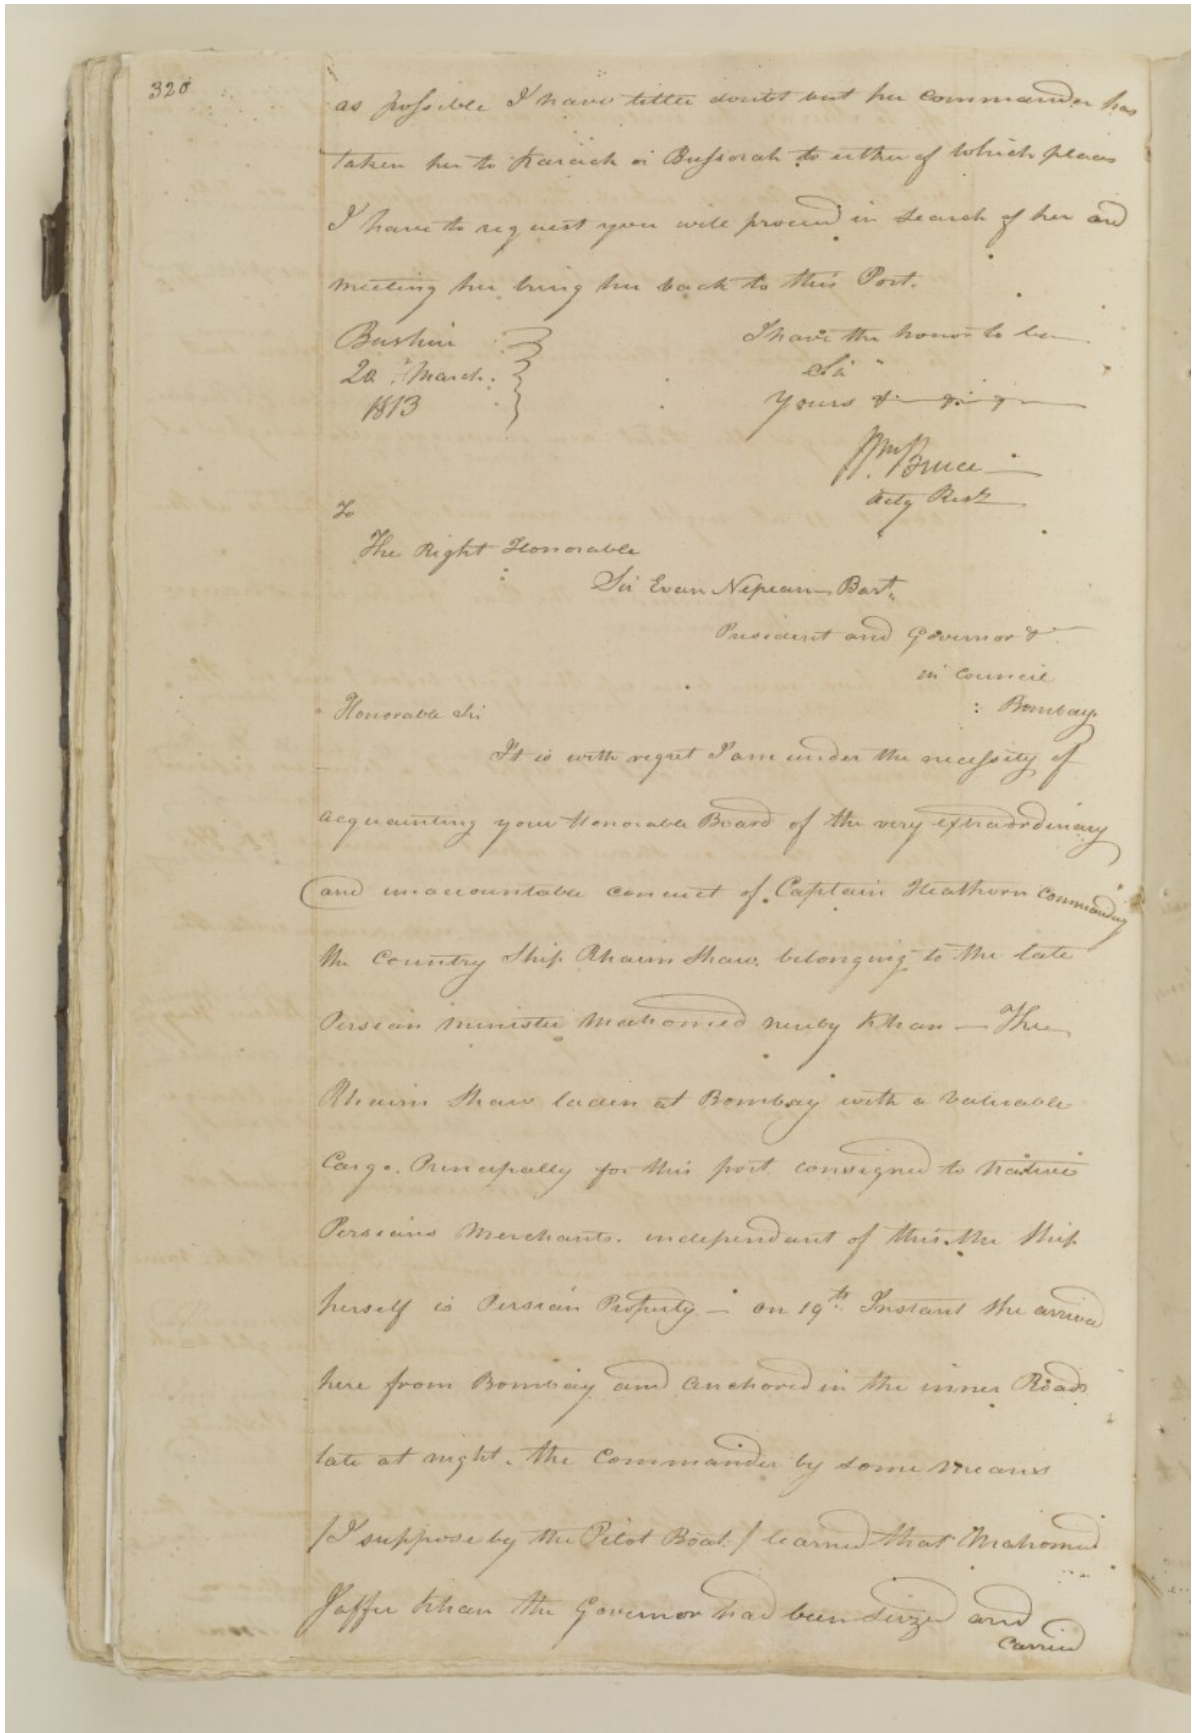 320
as possible I have little doubt but her commander has
taken her to Karack or Bussorah to either of which places
I have to request you will proceed in search of her and
meeting her bring her back to this Port.
Bushire
20th March
1813
I have the honor to be
Sir
Yours &
Wm Bruce
Actg Resdt
To
The Right Honorable
Sir Evan Nepean Bart.
President and Governor &
in Council
Bombay
Honorable Sir
It is with regret I am under the necessity of
acquainting your Honorable Board of the very extraordinary
and unaccountable conduct of Captain Heathorn Commanding
the Country Ship Rhaim Shaw belonging to the late
Persian Minister Mahomed Neeby Khan — The
Rhaim Shaw laden at Bombay with a valuable
Cargo. Principally for this port consigned to native
Persians Merchants. independant of this the Ship
herself is Persian Property — on 19th Instant she arrived
here from Bombay and anchored in the inner Roads
late at night. the Commander by some means
/I suppose by the Pilot Boat/ learned that Mahomed
Jaffer Khan the Governor had been seized and
carried